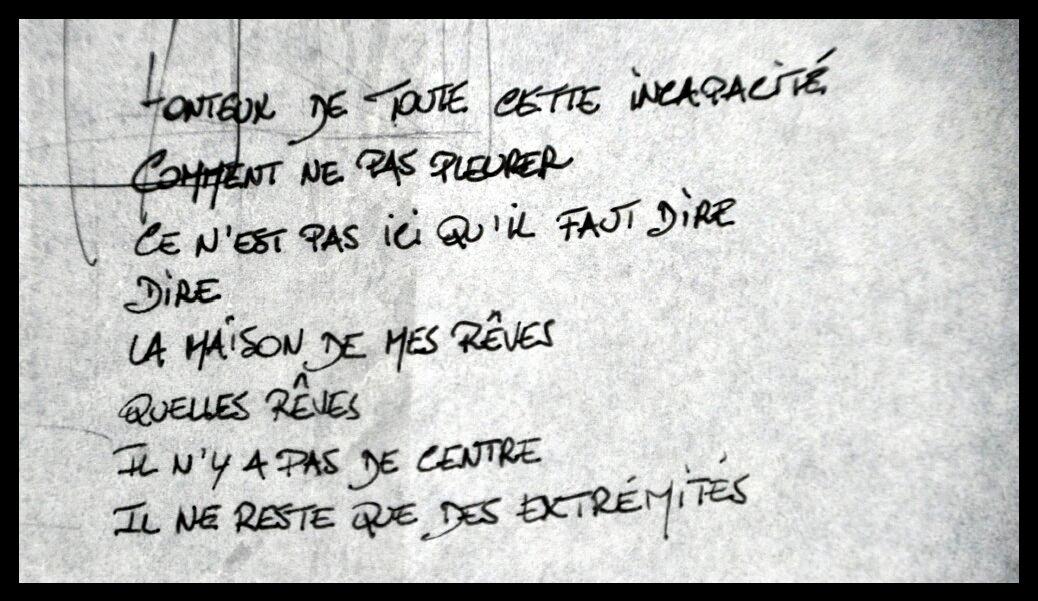 HONTEUX DE TOUTE CETTE INCAPACITÉ
COMMENT NE PAS PLEURER
CE N'EST PAS ICI QU'IL FAUT DIRE
DIRE
LA MAISON DE MES RÊVES
QUELLES RÊVES
IL N'Y A PAS DE CENTRE
IL NE RESTE QUE DES EXTRÉMITÉS